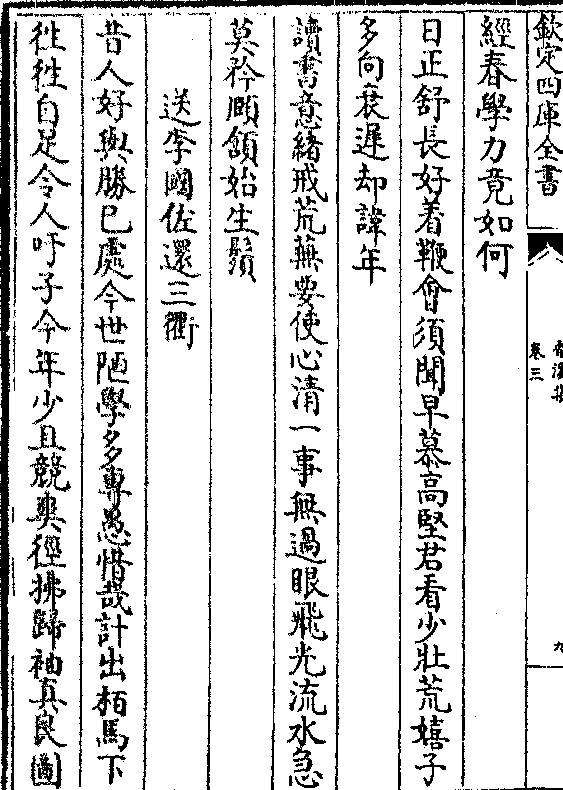 欽定四庫全書
卷三
九
經春學力竟如何
日正舒長好着鞭會須聞早慕高堅君看少壯荒嬉子
多向衰遲却諱年
讀書意緒戒荒蕪要使心清一事無過眼飛光流水急
莫矜頤頷始生鬚
送李國佐還三衢
昔人好與勝已處今世陋學多專愚惜哉計出柏馬下
徃徃自足令人吁子今年少且競爽徑拂歸袖真良圖